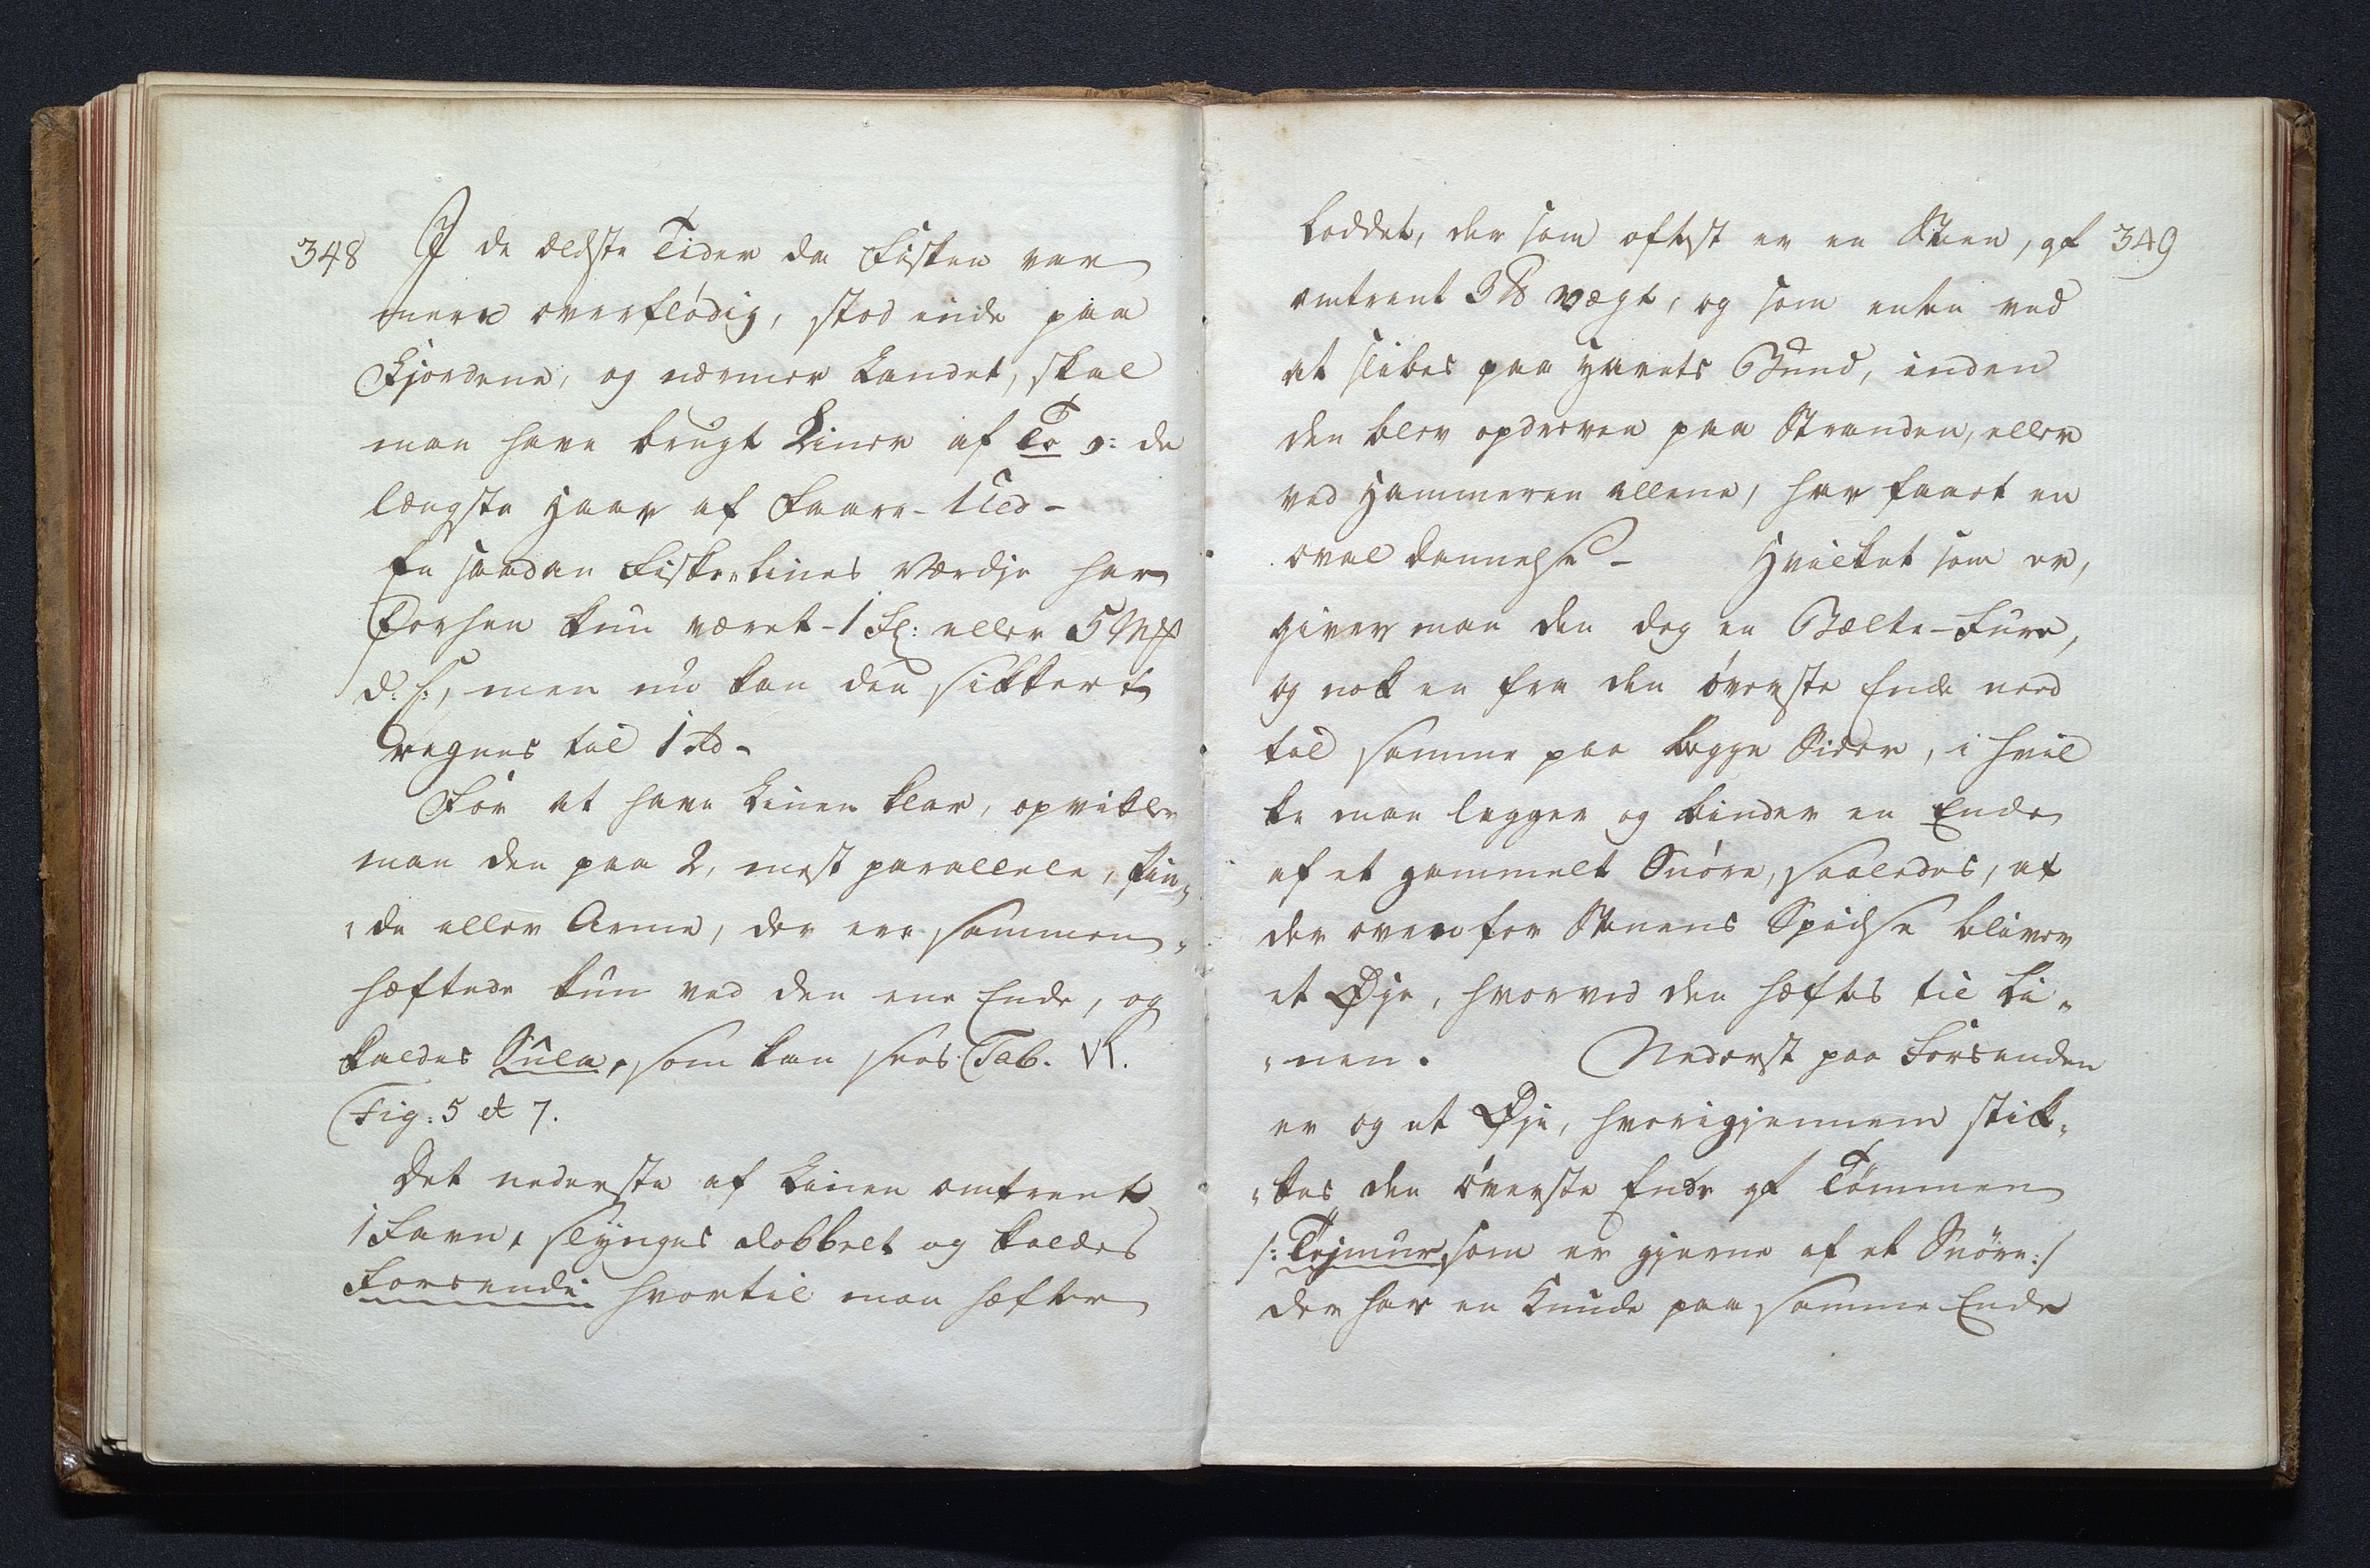 348
I de ældste Tider da Fisken var
mere overflödig, stod inde paa
Fjordene, og nærmer Landet, skal
man have brugt Liner af To ɔ: de
længste Haar af Faare-Uld-
En saadan Fiske-Lines Værdje har
Forhen kun været - 1 Fl: eller 5 Mk
d: C:, men nu kan den sikkert
regnes til 1 Rd -
For at have Linen klar, opvikler
man den paa 2, mest parallele, Pin„
„de eller Arme, der ere sammen„
hæftede kun ved den ene Ende, og
kaldes Sula, som kan sees Tab. VI.
Fig: 5 et 7.
Det nederste af Linen omtrent
1 Favn, slynges dobbelt og kaldes
Forsendi hvortil man hæfter
349
Loddet, der som oftest er en Steen, af
omtrent 3 ℔ vægt, og som enten ved
at slibes paa Havets Bund, inden
den blev opdreven paa Stranden, eller
ved Hammeren allene, har faaet en
oval dannelse - Hvilket som er,
giver man den dog en Bælte-Fure,
og nok en fra den överste Ende ned
til samme paa begge Sider, i hvil
ke man legger og binder en Ende
af et gammelt Snöre, saaledes, at
der ovenfor Stenens Spidse bliver
et Øje, hvorved den hæftes til Li„
„nen. Nederst paa Forsenden
er og et Øje, hvorigjennem stik„
„kes den överste Ende af Tömmen
/: Tojmur, som er gjerne af et Snöre :/
der har en Knude paa samme Ende